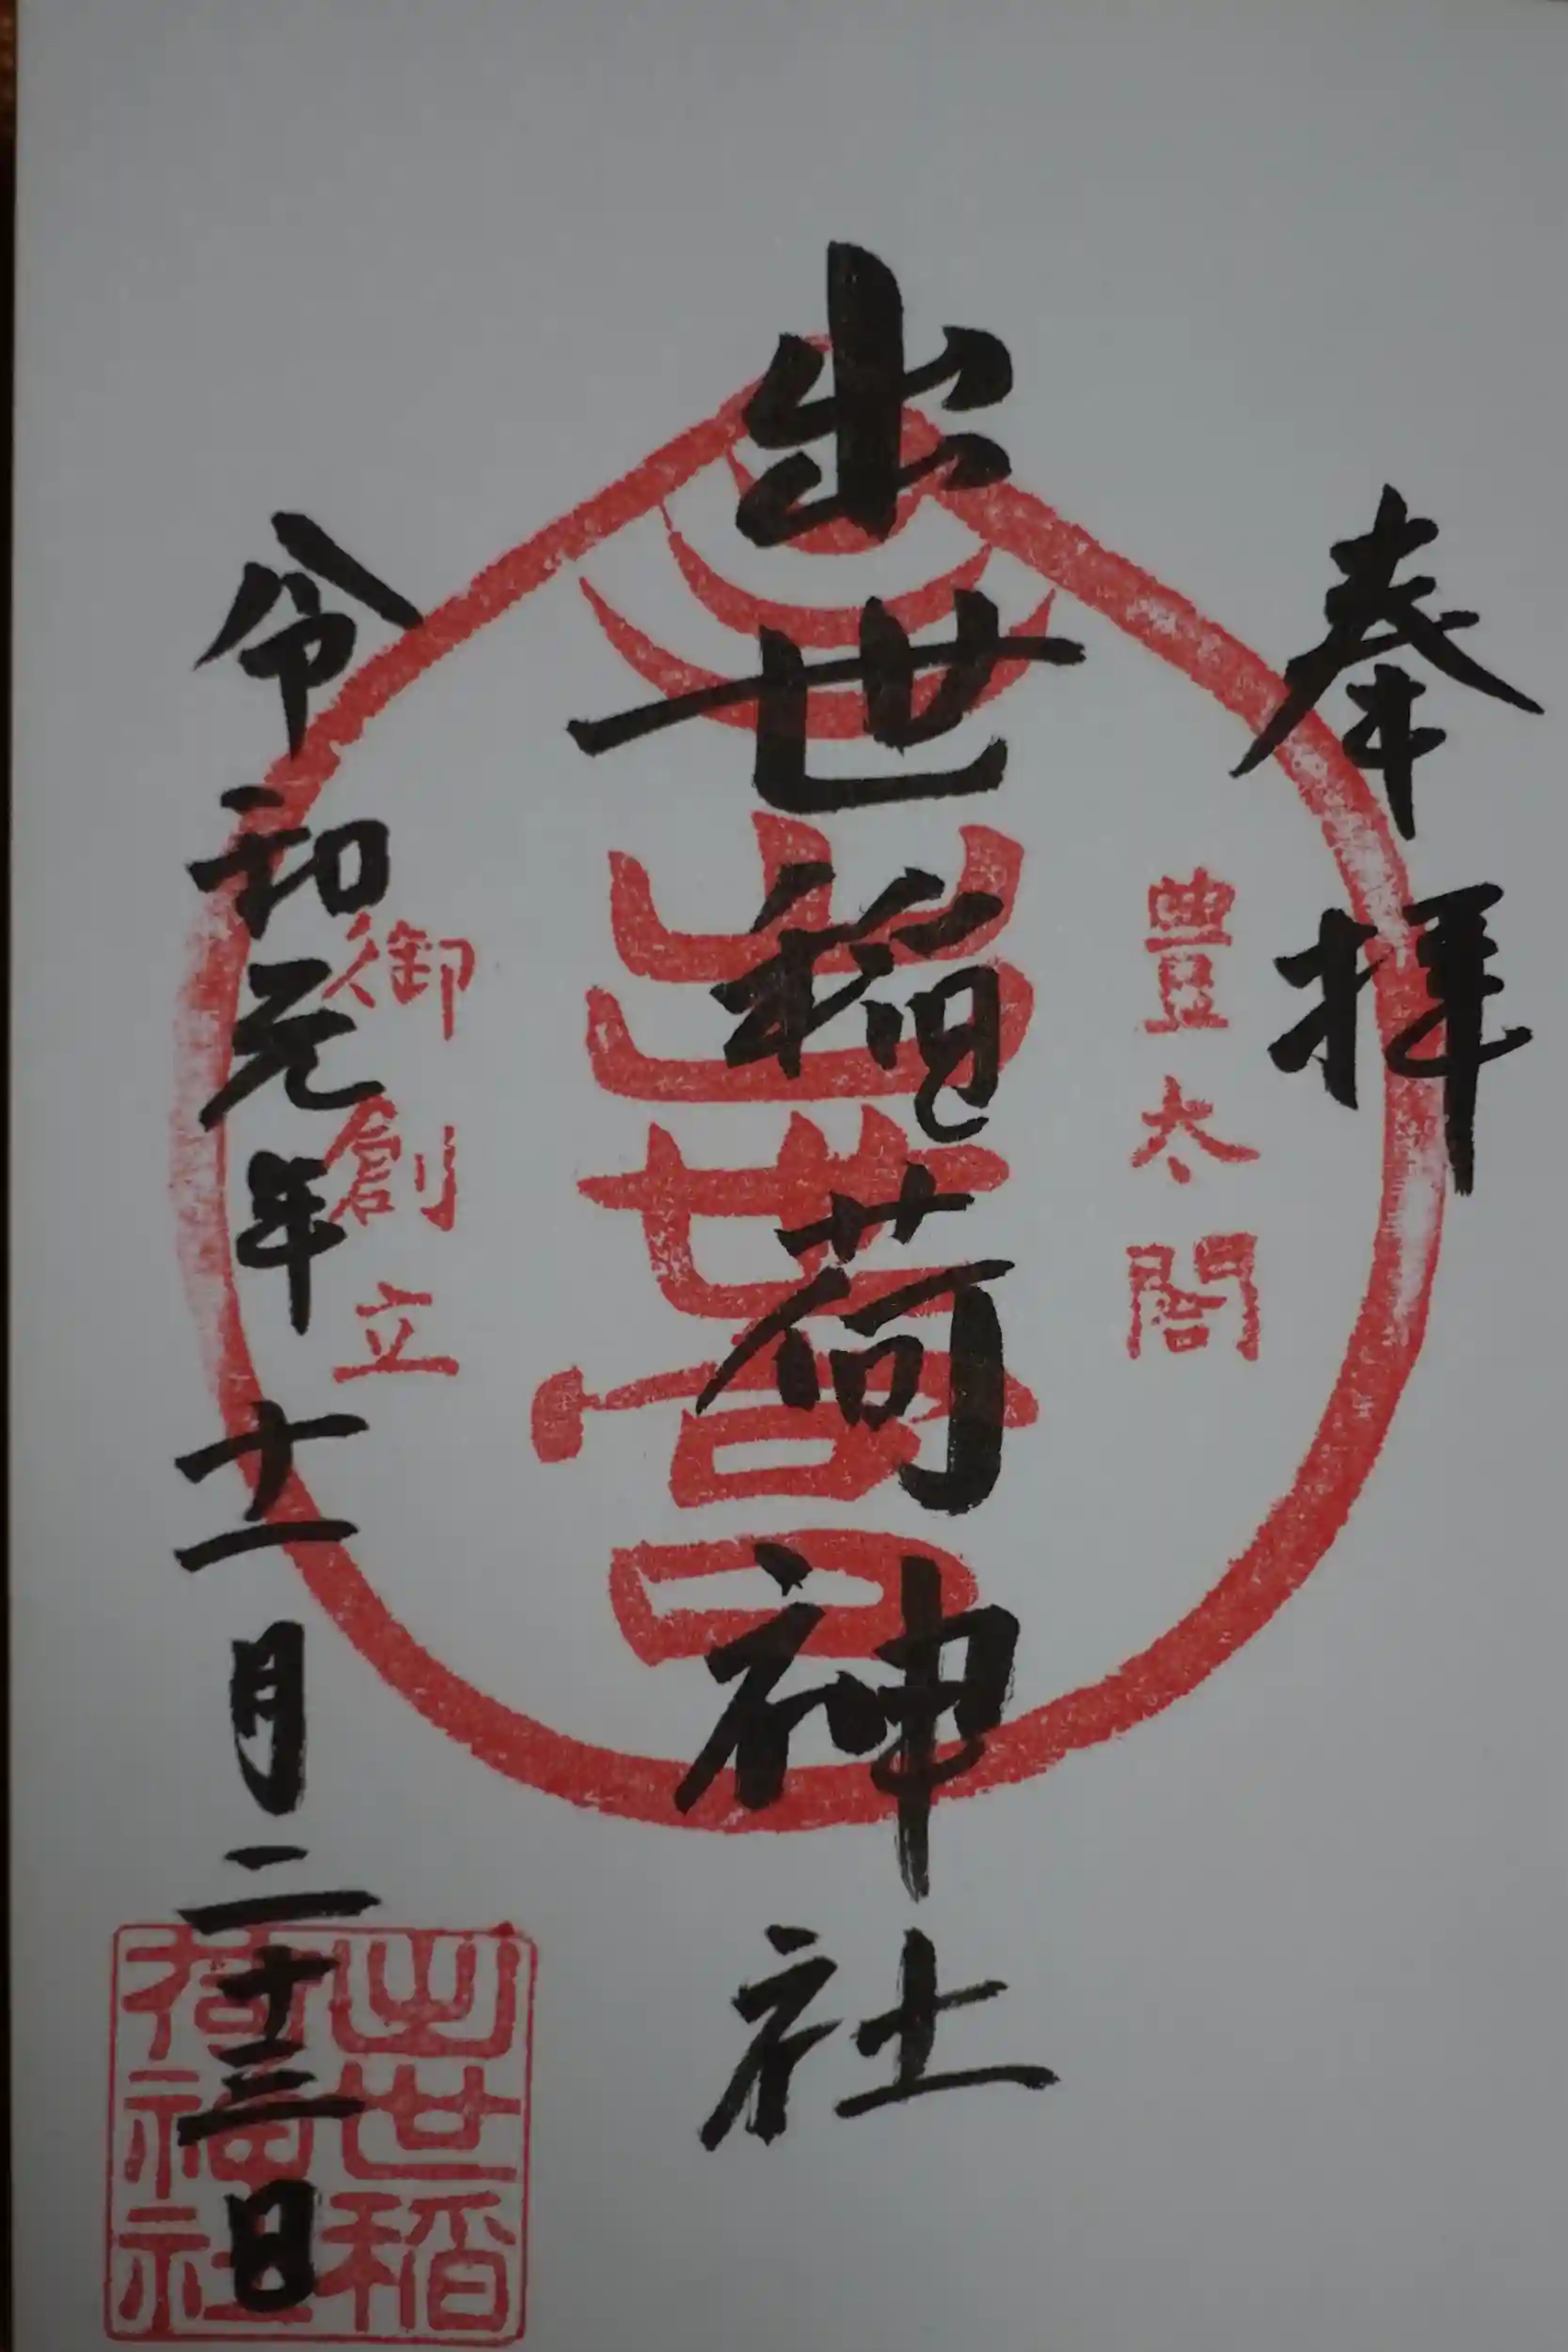 奉拝
豊太閤
出世稲荷神社
出世宮
御創立
令和元年十一月二十三日
出世稲
荷神社